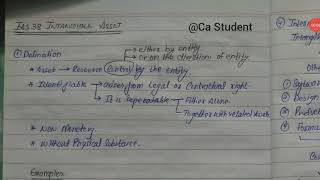 IAS 38 INTANGIBLE ASSET
@Ca Student
① Defination
→ either by entity
→ or on the directions of entity
• Asset → Resource Control by the entity
• Identifiable → arises from Legal or Contractual right
→ It is seperateable → Either alone
→ Together with related assets
• Non Monetary
• Without Physical Substance.
Examples
Intangi
Othe
① Softwar
② Design
③ Product
④ Form